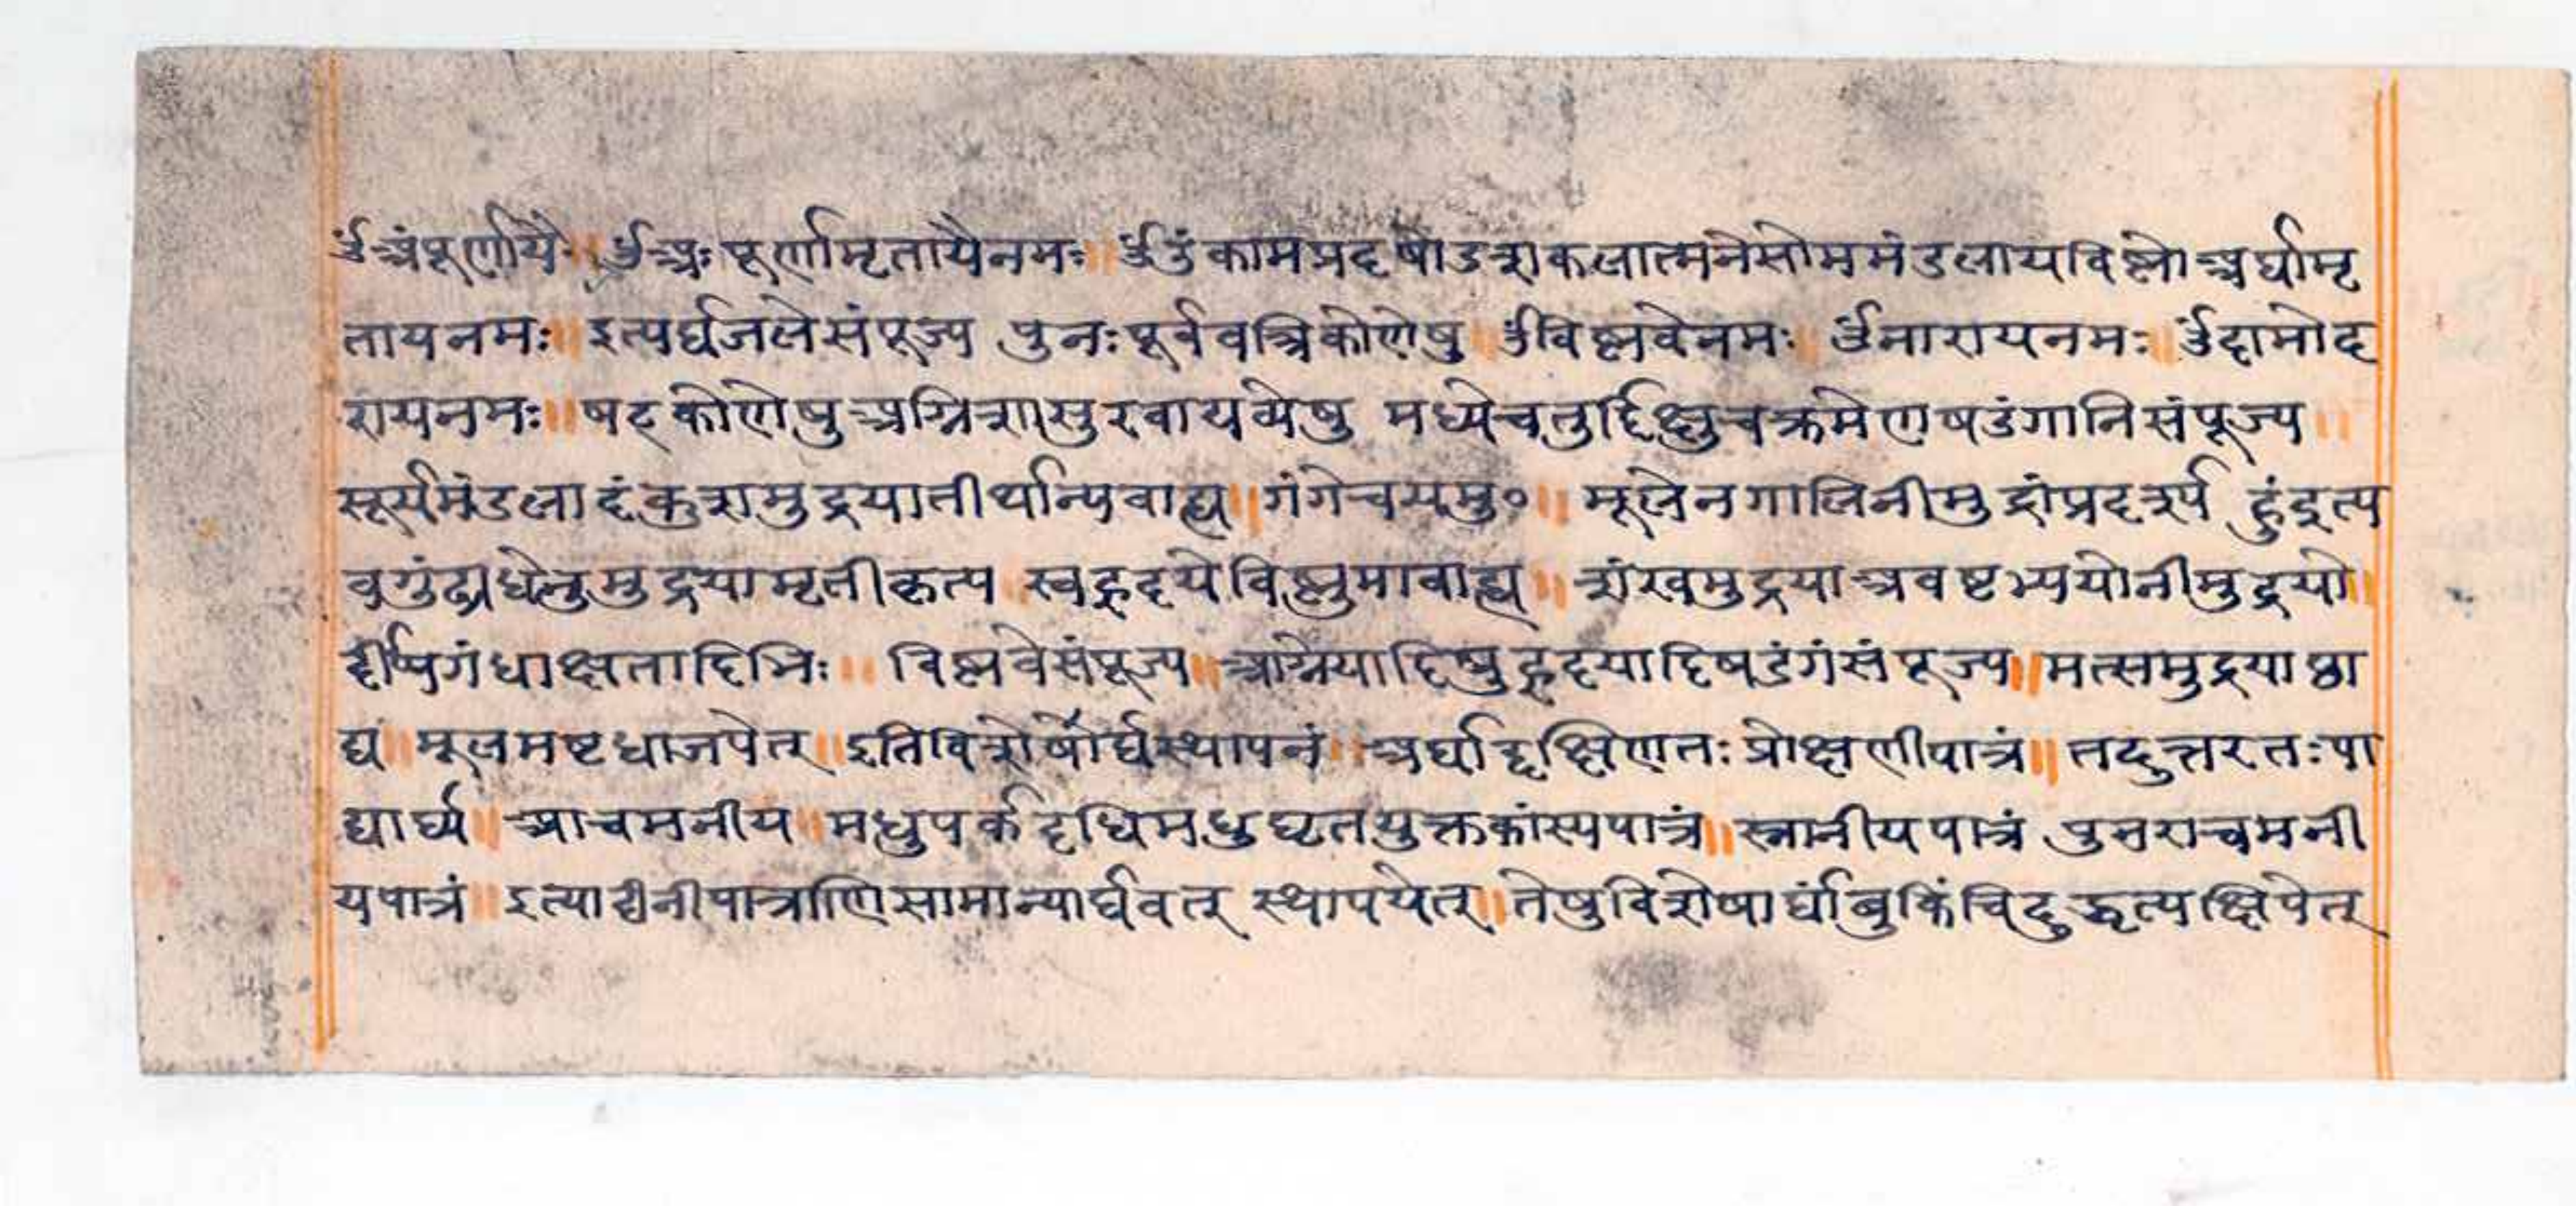 ॐअंपूर्णायै ॥ ॐअः पूर्णामृतायैनमः ॥ ॐउंकामप्रदषोडशकलात्मनेसोममंडलायविष्णोअर्घामृ
तायनमः ॥ इत्यर्घजलेसंपूज्य पुनःपूर्ववत्रिकोणेषु ॐविष्णवेनमः ॥ ॐनारायनमः ॥ ॐदामोद
रायनमः ॥ षट्कोणेषुअग्निशासुरवायव्येषु मध्येचतुर्दिक्षुचक्रमेणषडंगानिसंपूज्य ॥
सूर्यमंडलादंकुशमुद्रयातीर्थान्यवाह्य ॥ गंगेचयमु० ॥ मूलेनगालिनीमुद्रांप्रदर्श्य हुंइत्य
वगुंठ्यधेनुमुद्रयामृतीकृत्य स्वहृदयेविष्णुमावाह्य ॥ शंखमुद्रयाअवष्टभ्ययोनीमुद्रयो ॥
द्दीप्यगंधाक्षतादिभिः ॥ विष्णवेसंपूज्य ॥ आग्नेयादिषुहृदयादिषडंगंसंपूज्य ॥ मत्समुद्रयाछा
द्य ॥ मूलमष्टधाजपेत् ॥ इतिविशेषार्घस्थापनं ॥ अर्घाद्दक्षिणतः प्रोक्षणीपात्रं ॥ तदुत्तरतःपा
द्यार्घ्य ॥ आचमनीय ॥ मधुपर्कदधिमधुघृतयुक्तकांस्यपात्रं ॥ स्नानीयपात्रं पुनराचमनी
यपात्रं ॥ इत्याद्यीनीपात्राणिसामान्यार्घवत् स्थापयेत् ॥ तेषुविशेषार्घांबुकिंचिदुद्धृत्यक्षिपेत्